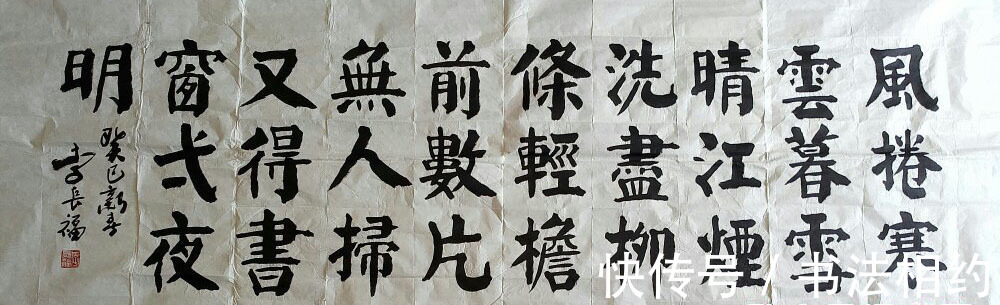 風捲寒
雲暮雪
晴江煙
洗盡柳
條輕檐
前數片
無人掃
又得書
窗弌夜
明
癸巳新春
李長福
快传号 / 书法相约